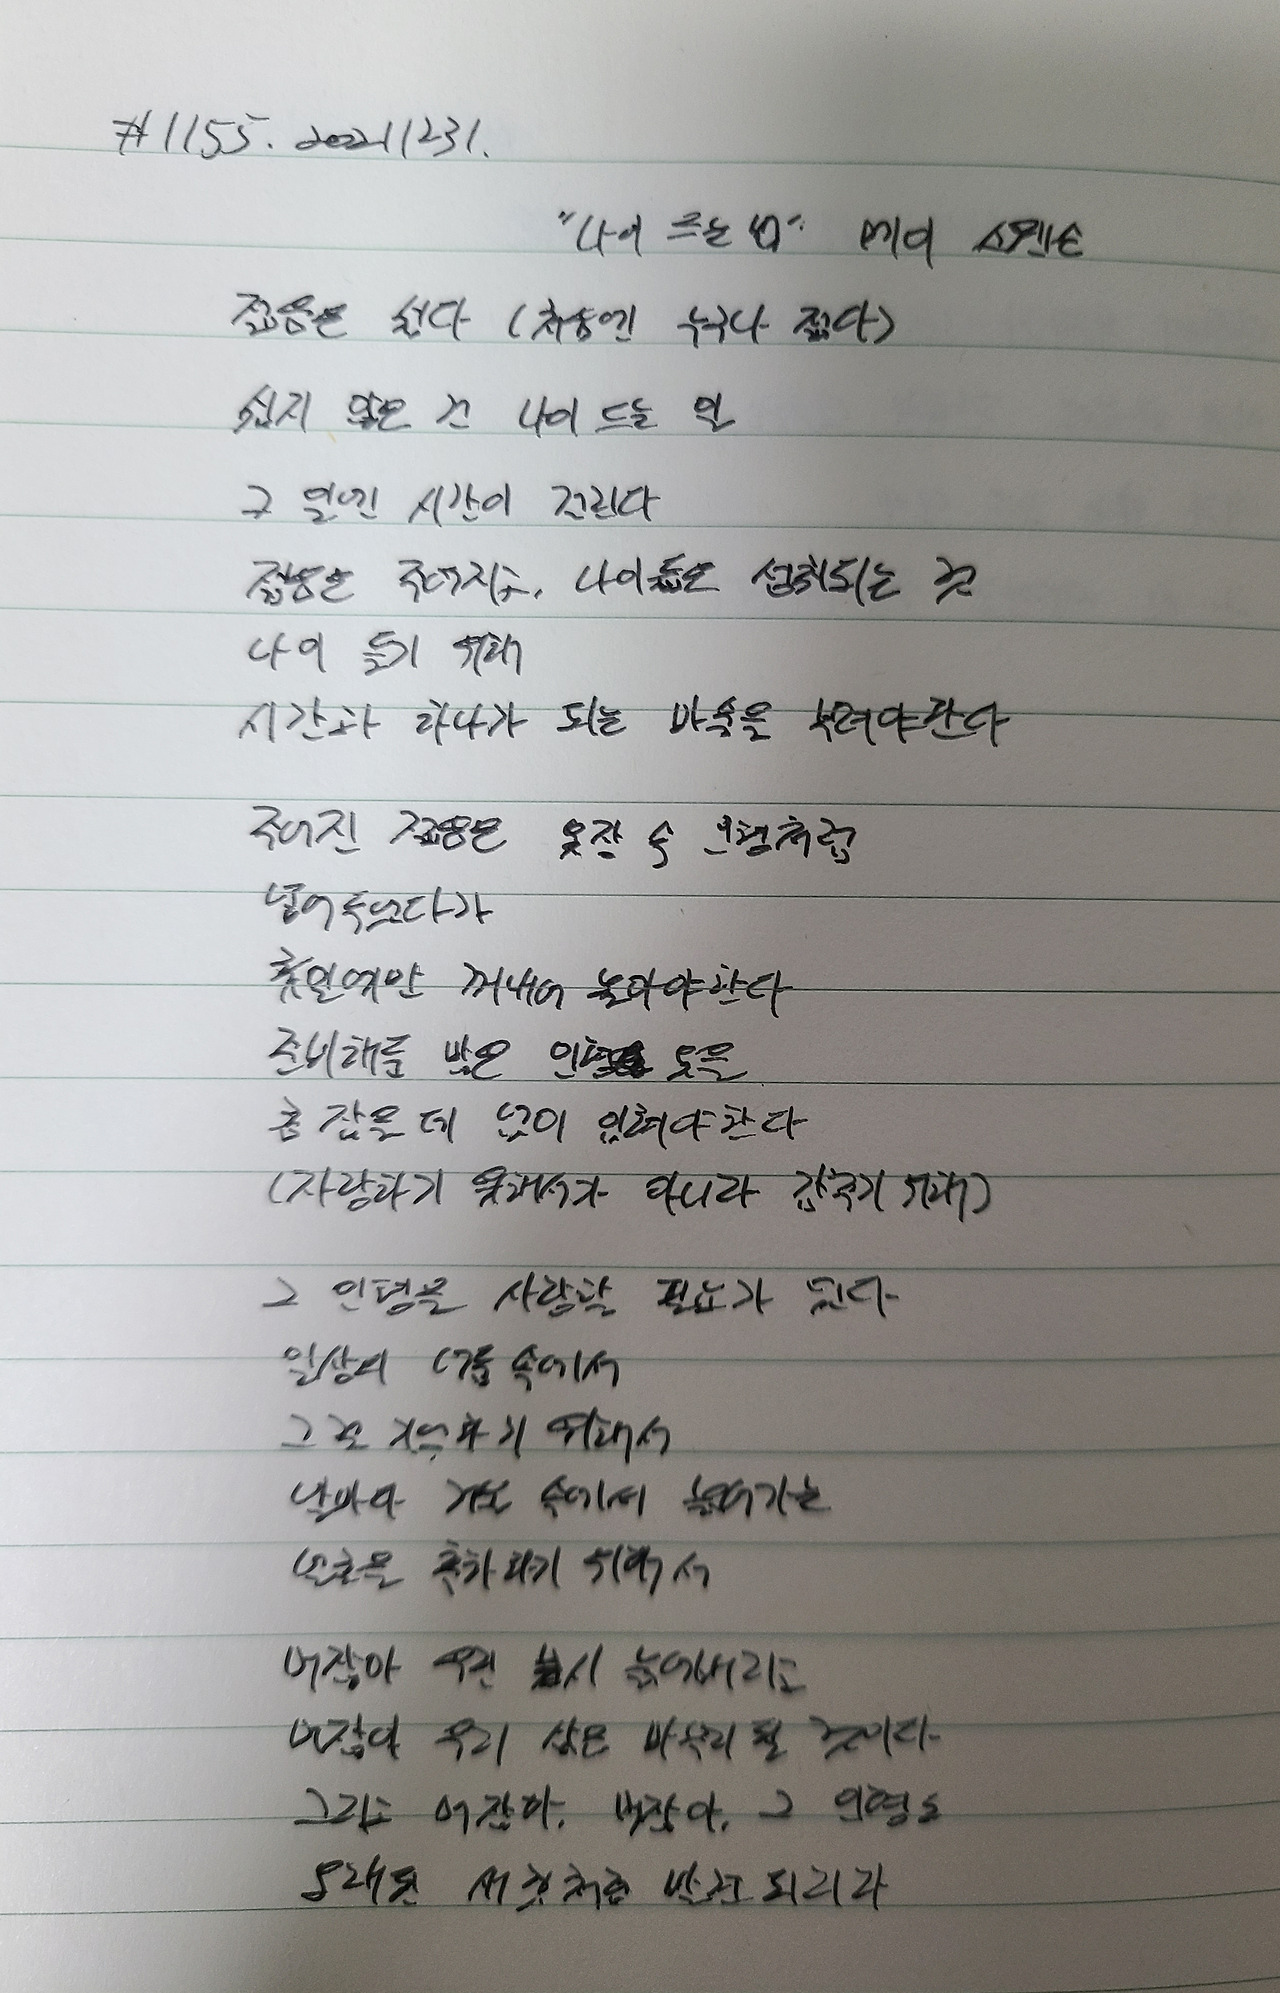 #1155. 20221231.
"나이 드는 법" 메이 스웬슨
젊음은 쉽다 (처음엔 누구나 젊다)
쉽지 않은 건 나이 드는 일
그 일엔 시간이 걸린다
젊음은 주어지고, 나이듦은 성취되는 것
나이 들기 위해
시간과 하나가 되는 마술을 부려야한다
주어진 젊음은 옷장 속 인형처럼
넣어두었다가
휴일에만 꺼내어 놀아야한다
준비해둔 많은 인형 옷을
흠 잡을 데 없이 입혀야한다
(자랑하기 위해서가 아니라 감추기 위해)
그 인형을 사랑할 필요가 있다
일상의 어둠 속에서
그걸 기억하기 위해서
날마다 거울 속에서 늙어가는
얼굴을 축하하기 위해서
머잖아 우린 몹시 늙어버리고
머잖아 우리 삶은 마무리 될 것이다
그리고 머잖아, 머잖아, 그 인형도
오래된 새 것처럼 발견 되리라